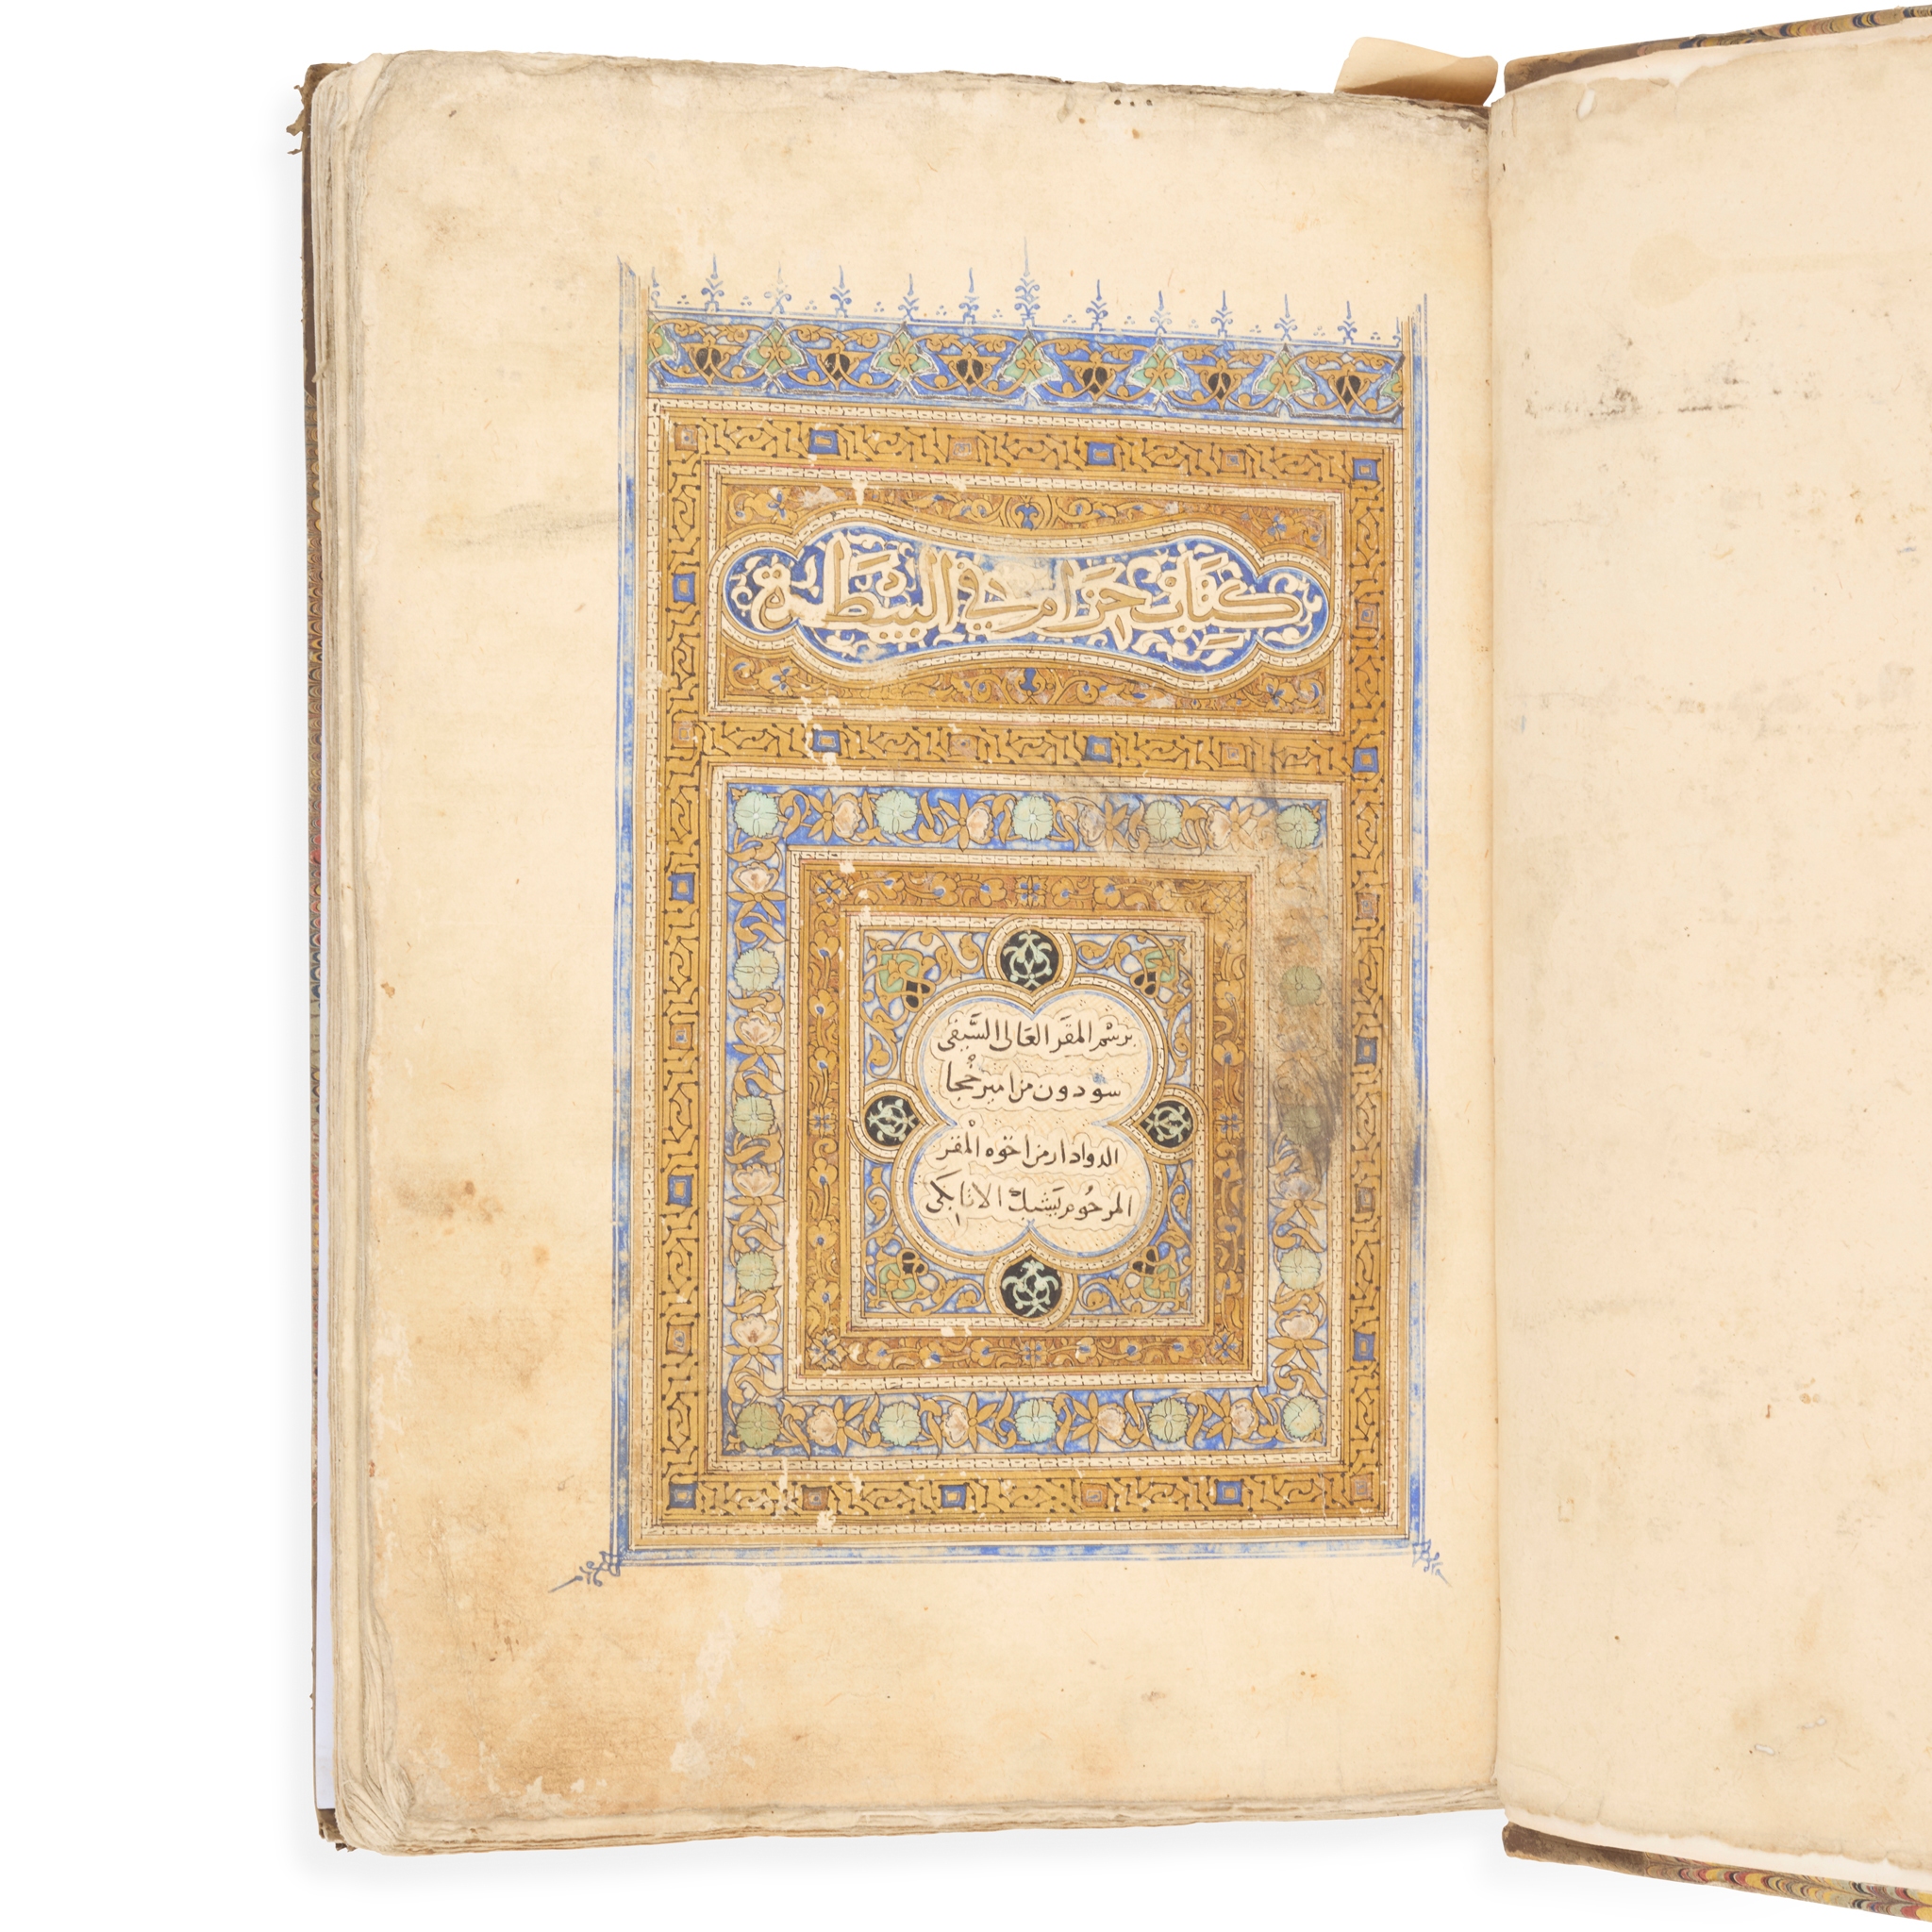 كتاب حزام في البيطرة
برسم المقر العالى السيفى
سودون من امير خجا
الدوادار من اخوه المقر
المرحوم يشبك الاتابكى